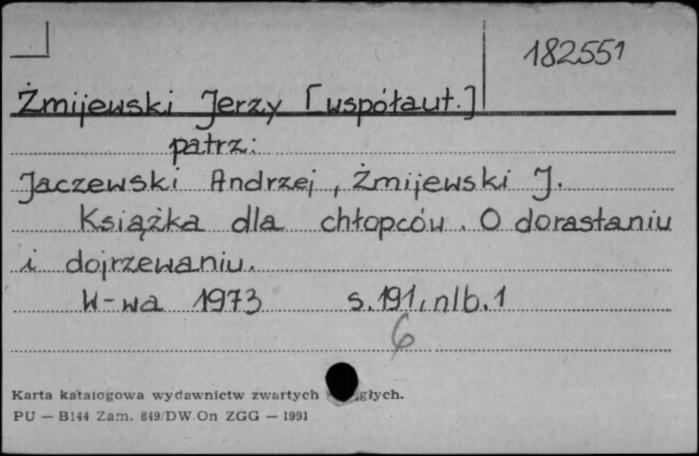 182551
Żmijewski Jerzy [współaut.]
patrz:
Jaczewski Andrzej, Żmijewski J.
Książka dla chłopców. O dorastaniu
i dojrzewaniu.
W-wa 1973 s. 191, nlb. 1
6
Karta katalogowa wydawnictw zwartych głych.
PU — B144 Zam. 849/DW.On ZGG — 1991